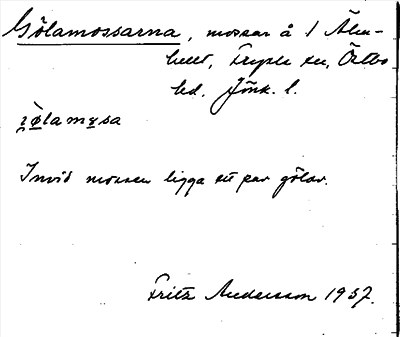 Gölamossarna, mossar å 1 Älm-
hult, Fryele sn, Östbo
hd. Jönk. l.
jø̀lamɷsa
Invid mossen ligga ett par gölar.
Fritz Andersson 1937.